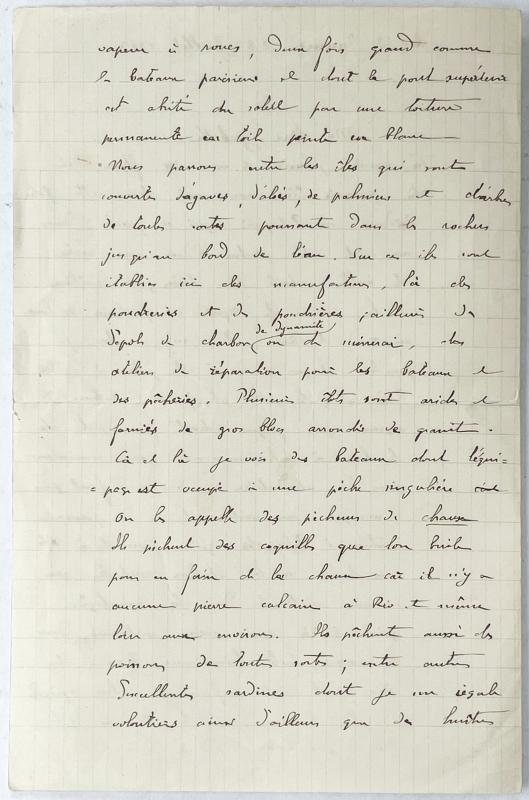 vapeur à roues, deux fois grand comme
les bateaux parisiens et dont le pont supérieur
est abrité du soleil par une toiture
permanente en toile peinte en blanc
Nous passons entre les îles qui sont
couvertes d'agaves, d'aloès, de palmiers et d'arbres
de toutes sortes poussant dans les rochers
jusqu'au bord de l'eau. Sur ces îles sont
établies ici des manufactures, là des
poudreries et des poudrières, ailleurs des
dépôts de charbon ou de minerai, des
de dynamite
ateliers de réparation pour les bateaux et
des pêcheries. Plusieurs îlots sont arides et
formés de gros blocs arrondis de granit.
Çà et là je vois des bateaux dont l'équi=
=page est occupé à une pêche singulière
On les appelle des pêcheurs de chaux
Ils pêchent des coquilles que l'on brûle
pour en faire de la chaux car il n'y a
aucune pierre calcaire à Rio et même
loin aux environs. Ils pêchent aussi des
poissons de toutes sortes; entre autres
succulentes sardines dont je me régale
volontiers ainsi d'ailleurs que des huîtres